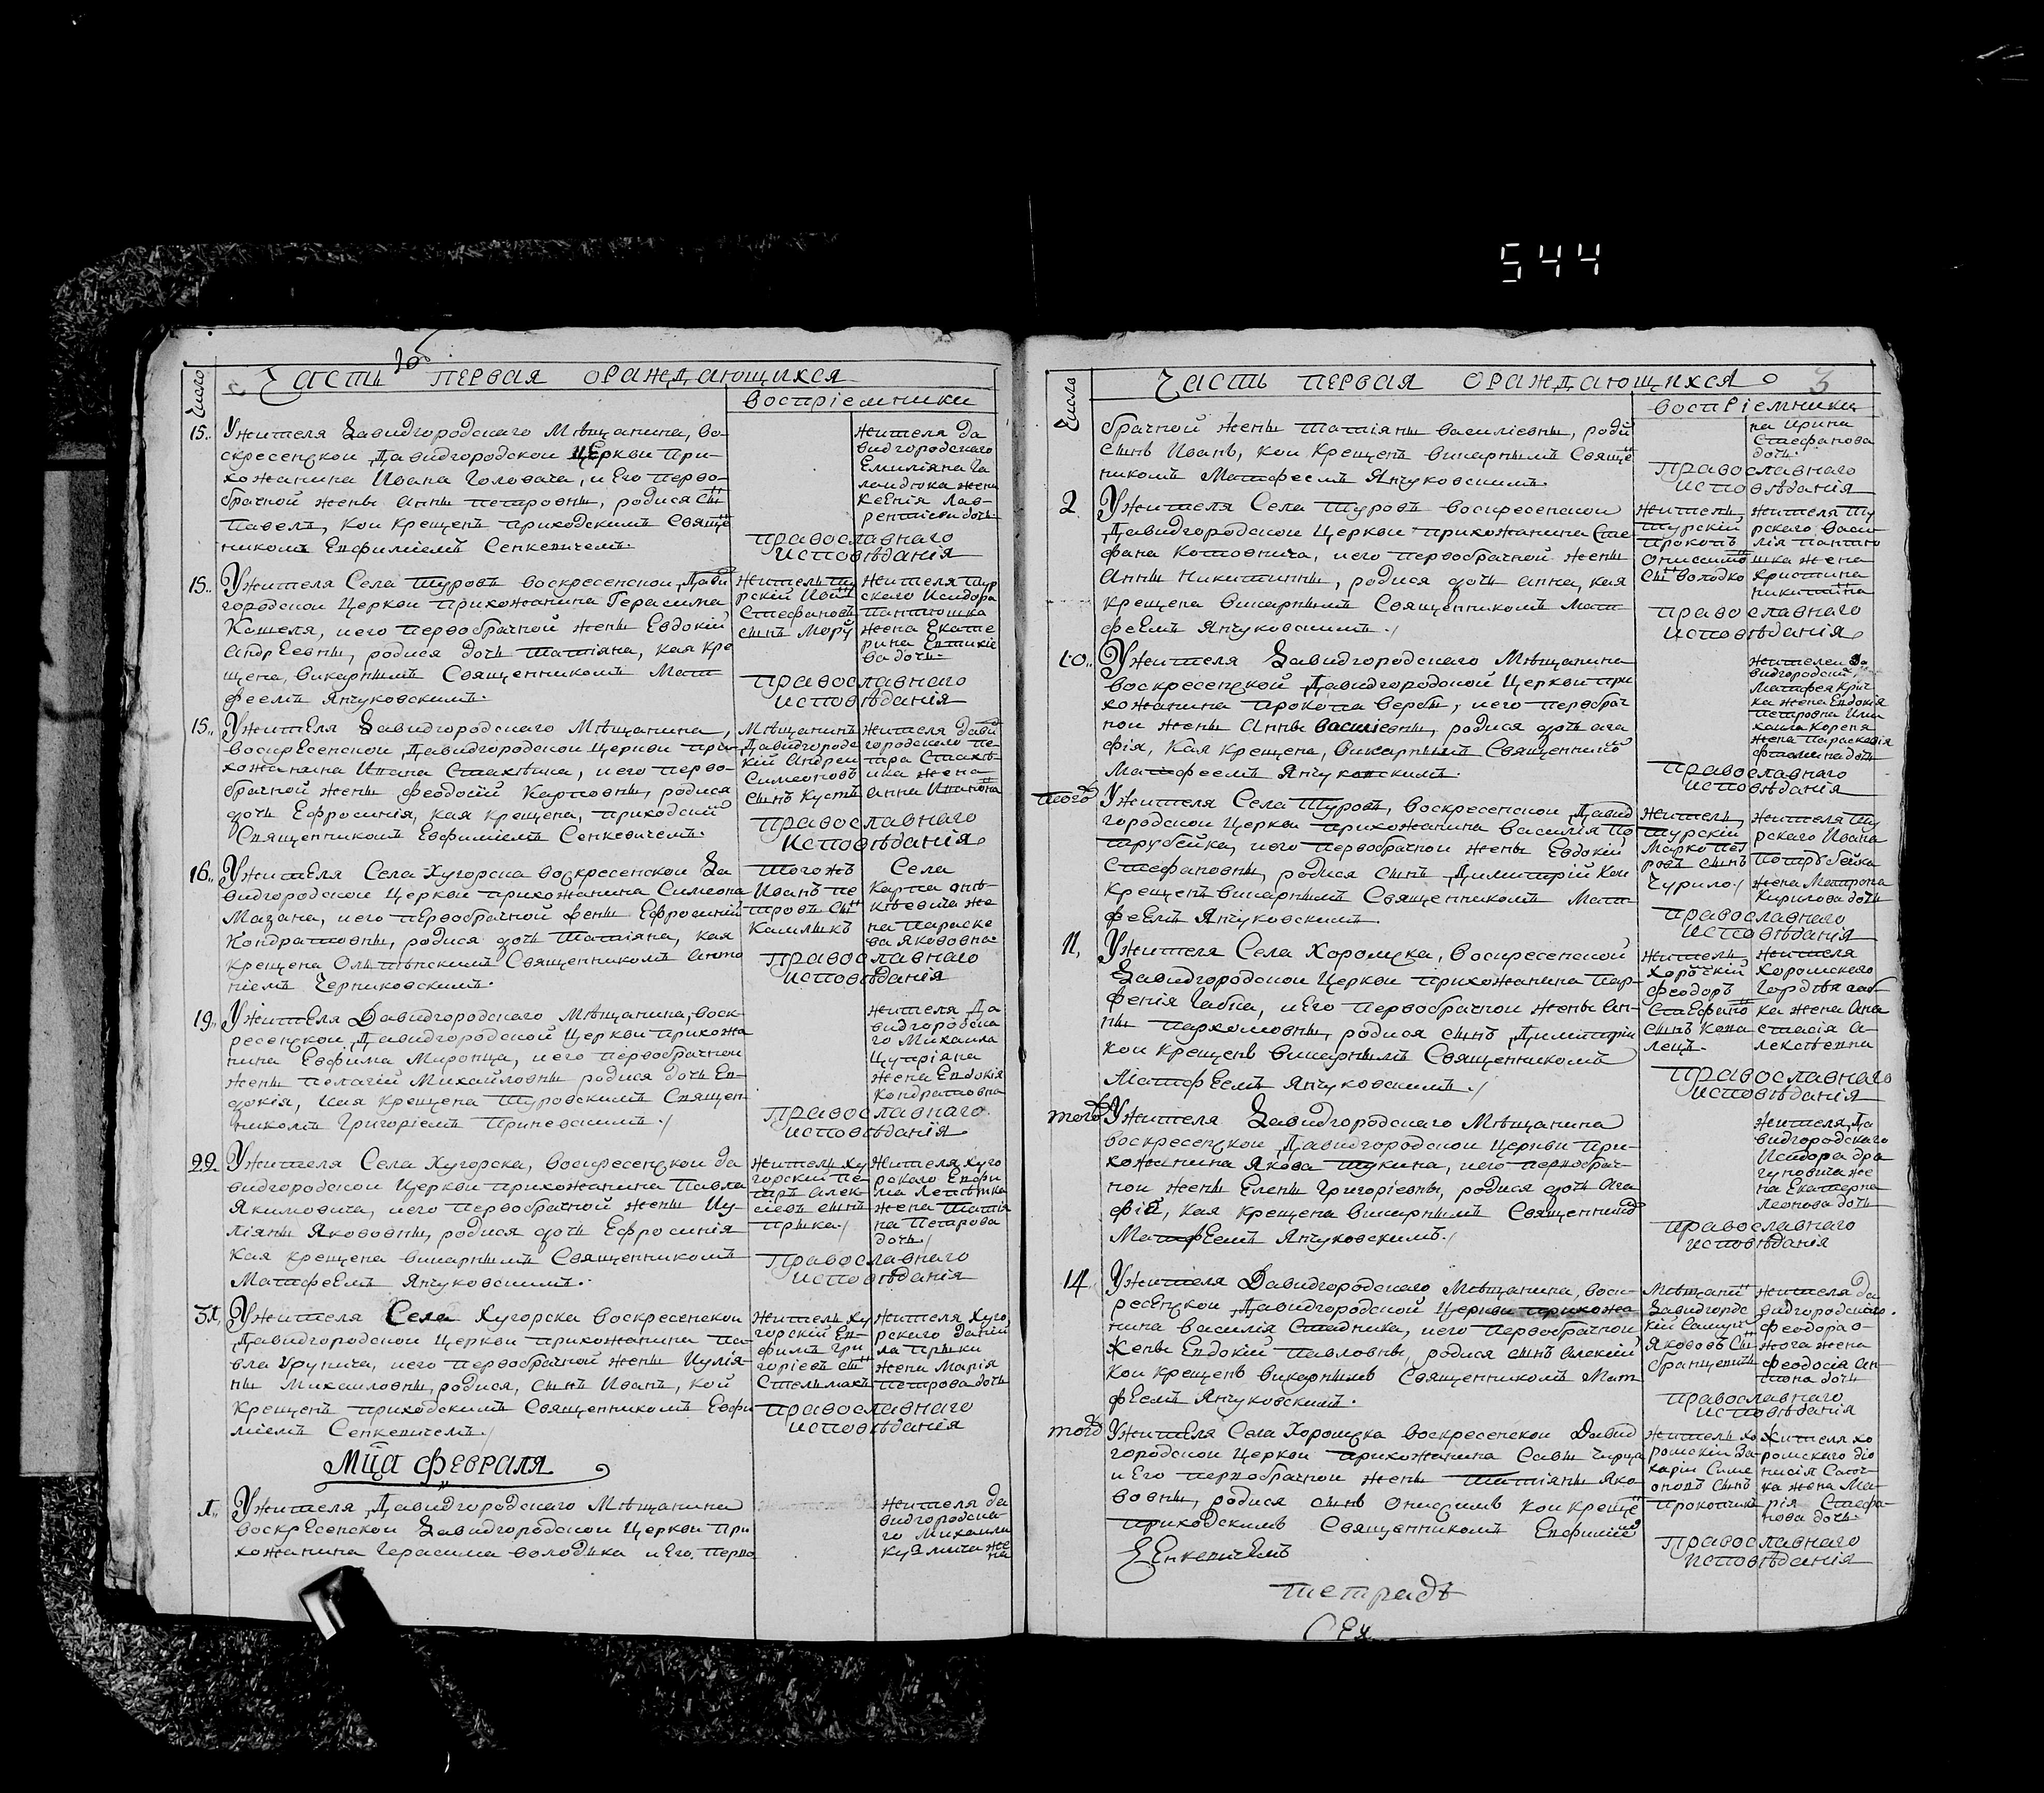 544
Часть первая ораждающихся
Число
воспріемники
15.
Ужителя Давидгородскаго Мѣщанина, во-
скресенской Давидгородской Церкви при-
хожанина Ивана Головача, и его перво-
брачной жены Анны Петровны, родися сы
Павелъ, кои крещенъ приходскимъ Свяще
никомъ Евфиміемъ Сенкевичемъ.
жителя да
видгородскаго
Емиліяна Га
ландюка жена
Ксенія Лав-
рентіева дочь
православнаго
исповѣданія
15.
Ужителя Села Туровъ воскресенской Дави
городской Церкви прихожанина Герасима
Кошеля, иего первобрачной жены Евдокіи
Андреевны, родися дочь Татіяна, кая кре
щена, викарнымъ Священникомъ Мат
феемъ Янчуковскимъ.
Житель Ту
рскій Иван
Стефановъ
сынъ Мору
Жителя Тур
скаго Исидора
Пантюшка
жена Екате
рина Евтихіе
ва дочь
православнаго
исповѣданія
15.
Ужителя Давидгородскаго Мѣщанина,
воскресенской Давидгородской церкви при-
хожанина Ивана Стахѣича, иего перво-
брачной жены Феодосіи Карповны, родися
дочь Ефросинія, кая крещена, приходскій
Священникомъ Евфиміемъ Сенкевичемъ.
Мѣщанинъ
Давидгородс
кій Андреи
Симеоновъ
сынъ Кусть
Жителя Давид
городскаго пе-
тра Стахѣ-
ича жена
Анна Иванова
православнаго
исповѣданія
16.
Ужителя Села Хугорска воскресенской Да
видгородской Церкви прихожанина Симеона
Мазана, иего первобрачной жены Ефросиніи
Кондратовны, родися дочь Татіяна, кая
крещена Ольпѣнскимъ Священникомъ Анто
ніемъ Черниковскимъ.
Тогожъ
Иванъ пе
тровъ сы
Камлыкъ
Села
на Параске
ва Яковова
православнаго
исповѣданія
19.
Ужителя Давидгородскаго Мѣщанина, воск-
ресенской Давидгородской Церкви прихожа
нина Евфима Миронца, иего первобрачной
жены Пелагіи Михаиловны родися дочь Ев-
докія, кая крещена Туровскимъ Священ-
никомъ Григоріемъ Приневскимъ.
жителя Да
видгородска
го Михаила
Цупріяна
жена Евдокія
Кондратовна
Православнаго
исповѣданія.
22.
Ужителя Села Хугорска, воскресенской да
видгородской Церкви прихожанина Павла
Якимовича, иего первобрачной жены Иу-
ліяны Якововны, родися дочь Ефросинія
кая крещена викарнымъ Священникомъ
Матфеемъ Янчуковскимъ.
Житель Ху
горскій Пе-
тръ Алек-
сіевъ сынъ
Прыка.
Жителя Хуго
рскаго Евфи
ма Лепѣшка
жена Татія
на Петрова
дочь
Православнаго
исповѣданія
31.
Ужителя Села Хугорска воскресенской
Давидгородской Церкви прихожанина Па-
вла Крупича, иего первобрачной жены Иулія-
ны Михаиловны, родися, сынъ Иванъ, кой
крещенъ приходскимъ Священникомъ Евфи
міемъ Сенкевичемъ.
Житель Ху
горскій Ев-
фимъ Гри
горіевъ сы
Стельмахъ
Жителя Хуго
рскаго Даніи
ла Прыки
жена Марія
Петрова дочь
православнаго
исповѣданія
Мца Февраля
1.
Ужителя Давидгородскаго Мѣщанина
воскресенской Давидгородской Церкви При
хожанина Герасима Володька и Его перво
жителя да
видгородска-
го Михаила
Кузмича же
на
Часть первая ораждающихся
3
Число
воспріемники
брачной жены Татіяны Василіевны, роди
сынъ Иванъ, кои крещенъ викарнымъ Свяще
никомъ Матфеемъ Янчуковскимъ.
на Ирина
Стефанова
дочь.
Православнаго
исповѣданія
2
Ужителя Села Туровъ воскресенской
Давидгородской Церкви прихожанина Сте
фана Котовича, иего первобрачной жены
Анны Никитины, родися дочь Анна, кая
крещена викарнымъ Священникомъ Мат
феемъ Янчуковскимъ.
житель
Турскій
Прокопъ
Онисимо
сы Володко
жителя Ту
рскаго Васи
лія Пантю
шка жена
Христина
никитина
православнаго
исповѣданія
10.
Ужителя Давидгородскаго Мѣщанина
воскресенской Давидгородской Церкви при
хожанина Прокопа Вербы, иего первобрач
ной жены Анны Василіевны, родися дочь Ага
фія, кая крещена, викарнымъ Священнико
Матфеемъ Янчуковскимъ.
жителей Да
видгородски
Матфея Крич
ка жена Евдокія
Петровна Ми
хаила Кореня
жена Параскевія
дочь
Православнаго
исповѣданія
тогод
Ужителя Села Туровъ, воскресенской Давид
городской Церкви прихожанина Василія По
трубейка, иего первобрачной жены Евдокіи
Стефановны, родися сынъ Димитрій кои
крещенъ викарнымъ Священникомъ Мат
феемъ Янчуковскимъ.
житель
Турскій
Марко Пет
ровъ сынъ
Чурило
жителя Ту
рскаго Ивана
Потрубейка
жена Матрона
Кирилова дочь
православнаго
исповѣданія
11,
Ужителя Села Хоромска, воскресенской
Давидгородской Церкви прихожанина Пар-
фенія Габца, иЕго первобрачной жены Ан-
ны Пархомовны, родися сынъ Димитріи
кои крещенъ викарнымъ Священникомъ
Матфеемъ Янчуковскимъ.
житель
Феодоръ
Стефано
сынъ Копа
лецъ.
жителя
Хоромскаго
ка жена Ана
стасія А-
лексѣевна
Православнаго
исповѣданія
тогод
Ужителя Давидгородскаго Мѣщанина
воскресенской Давидгородской Церкви при-
хожанина Якова Шукина, иего первобрач-
ной жены Елены Григоріевны, родися дочь Ага
фія, кая крещена викарнымъ Священнико
Матфеемъ Янчуковскимъ.
жителя Да
видгородскаго
Исидора Дра
гуновича же
на Екатерна
Леонова дочь
православнаго
исповѣданія
14
Ужителя Давидгородскаго Мѣщанина, воск-
ресенской Давидгородской Церкви прихожа
нина Василія Стадника, иего первобрачной
Жены Евдокіи Павловны, родися сынъ Алексій
кои крещенъ викарнымъ Священникомъ Мат
феемъ Янчуковскимъ.
Мѣщани
Давидгордс
кій Самуи
Яковъ Сы
бранцевичъ
жителя Да
видгородскаго.
Феодора О-
жога жена
Феодосія Ан-
тона дочь
православнаго
исповѣданія
тогод
Ужителя Села Хоромска воскресенской Давид
городской Церкви прихожанина Савы Чирца
и Его первобрачной жены Татіяны Яко
вовны, родися сынъ Онисимъ кои креще
приходскимъ Священникомъ Евфиміе
Сенкевичемъ
житель хо
ромскіи За-
харіи Симе
оновъ сынъ
Прокопчикъ
жителя хо
ромскаго Дио
нисія Сант-
ка жена Ма-
рія Стефа-
нова дочь.
православнаго
исповѣданія
тетрадь